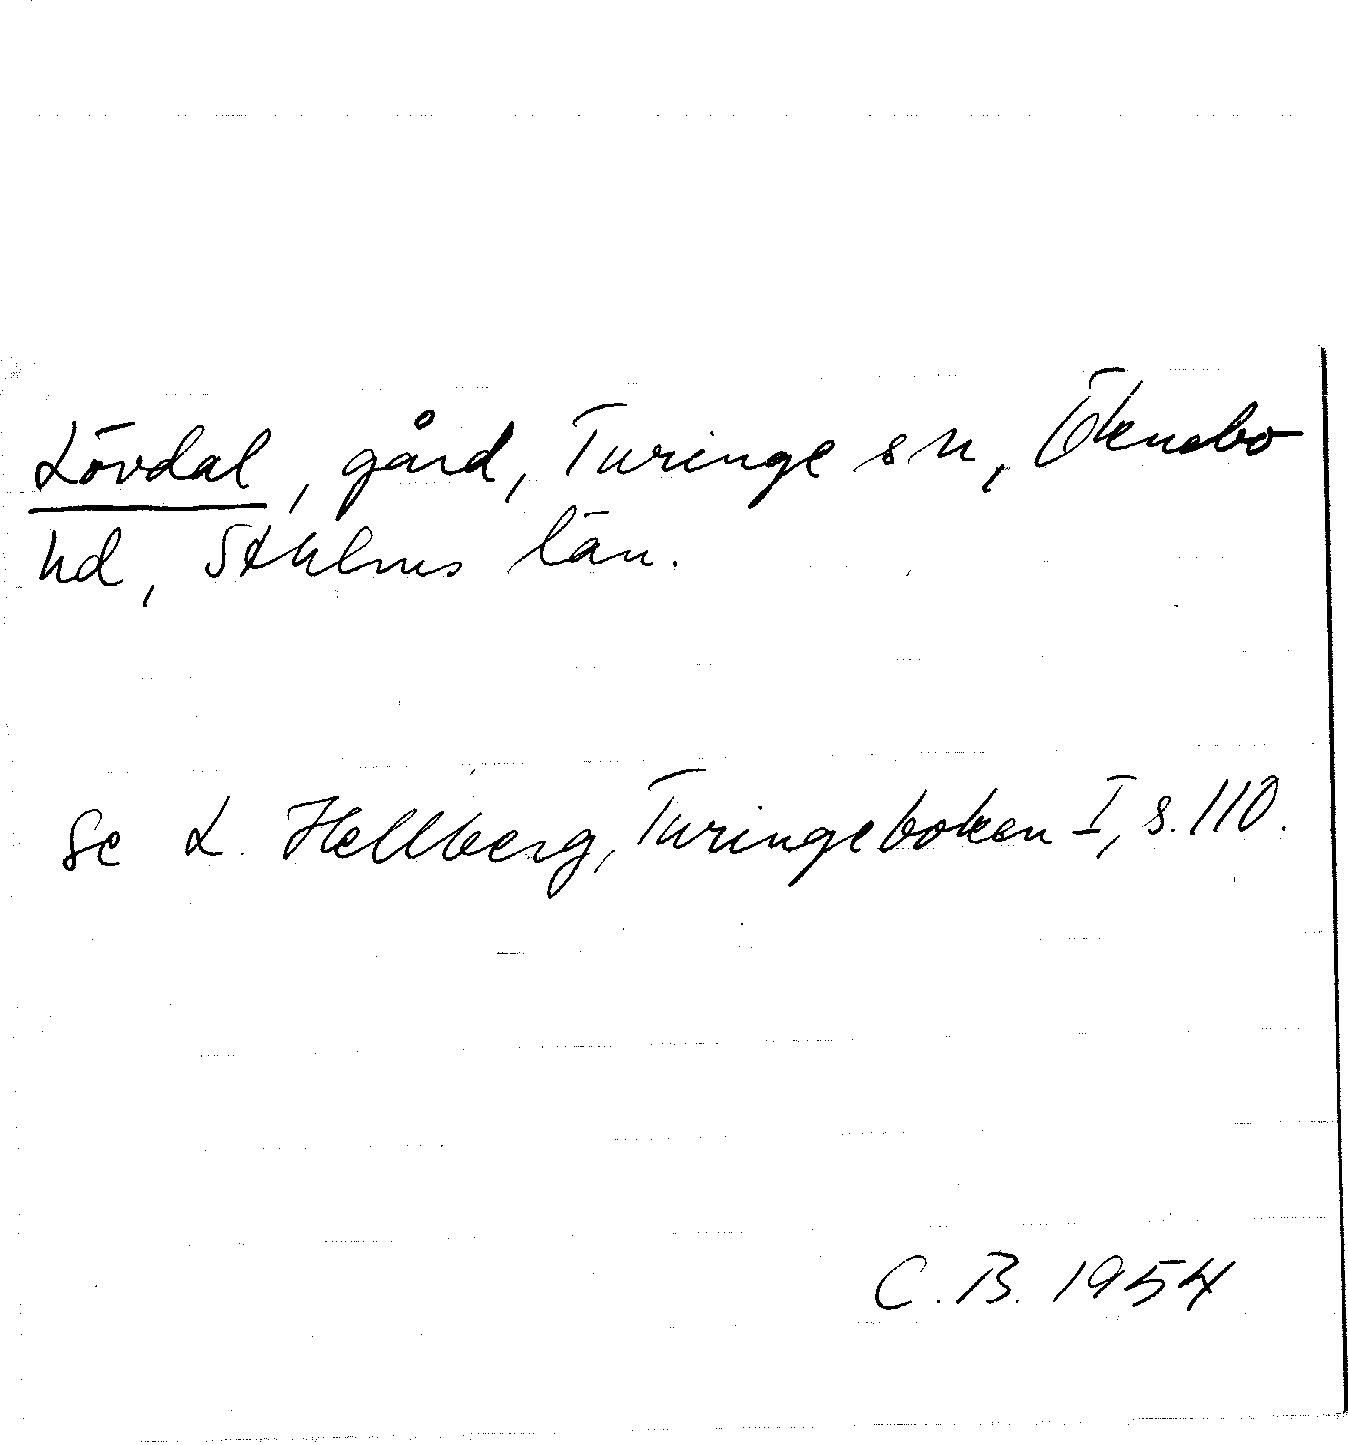 Lövdal, gård, Turinge sn, Öknebo
hd, Sthlms län.
Se L. Hellberg, Turingeboken I, s. 110.
C. B. 1954